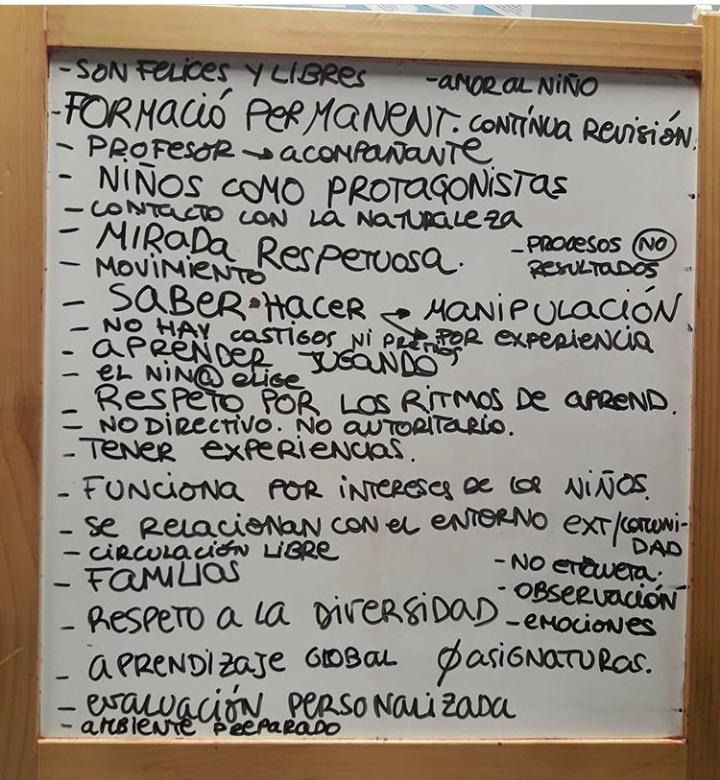 - SON FELICES Y LIBRES - AMOR AL NIÑO
- FORMACIÓ PERMANENT. CONTÍNUA REVISIÓN.
- PROFESOR → ACOMPAÑANTE
- NIÑOS COMO PROTAGONISTAS
- CONTACTO CON LA NATURALEZA
- MIRADA RESPETUOSA.
- PROCESOS NO RESULTADOS
- MOVIMIENTO
- SABER•HACER → MANIPULACIÓN
→ POR EXPERIENCIA
- NO HAY CASTIGOS NI PREMIOS
- APRENDER JUGANDO
- EL NIÑ@ ELIGE
- RESPETO POR LOS RITMOS DE APREND.
- NO DIRECTIVO. NO AUTORITARIO.
- TENER EXPERIENCIAS.
- FUNCIONA POR INTERESES DE LOS NIÑOS.
- SE RELACIONAN CON EL ENTORNO EXT/COMUNI-
DAD
- CIRCULACIÓN LIBRE
- FAMILIAS
- NO ETIQUETA.
- OBSERVACIÓN
- RESPETO A LA DIVERSIDAD
- EMOCIONES
- APRENDIZAJE GLOBAL Ø ASIGNATURAS.
- EVALUACIÓN PERSONALIZADA
- AMBIENTE PREPARADO